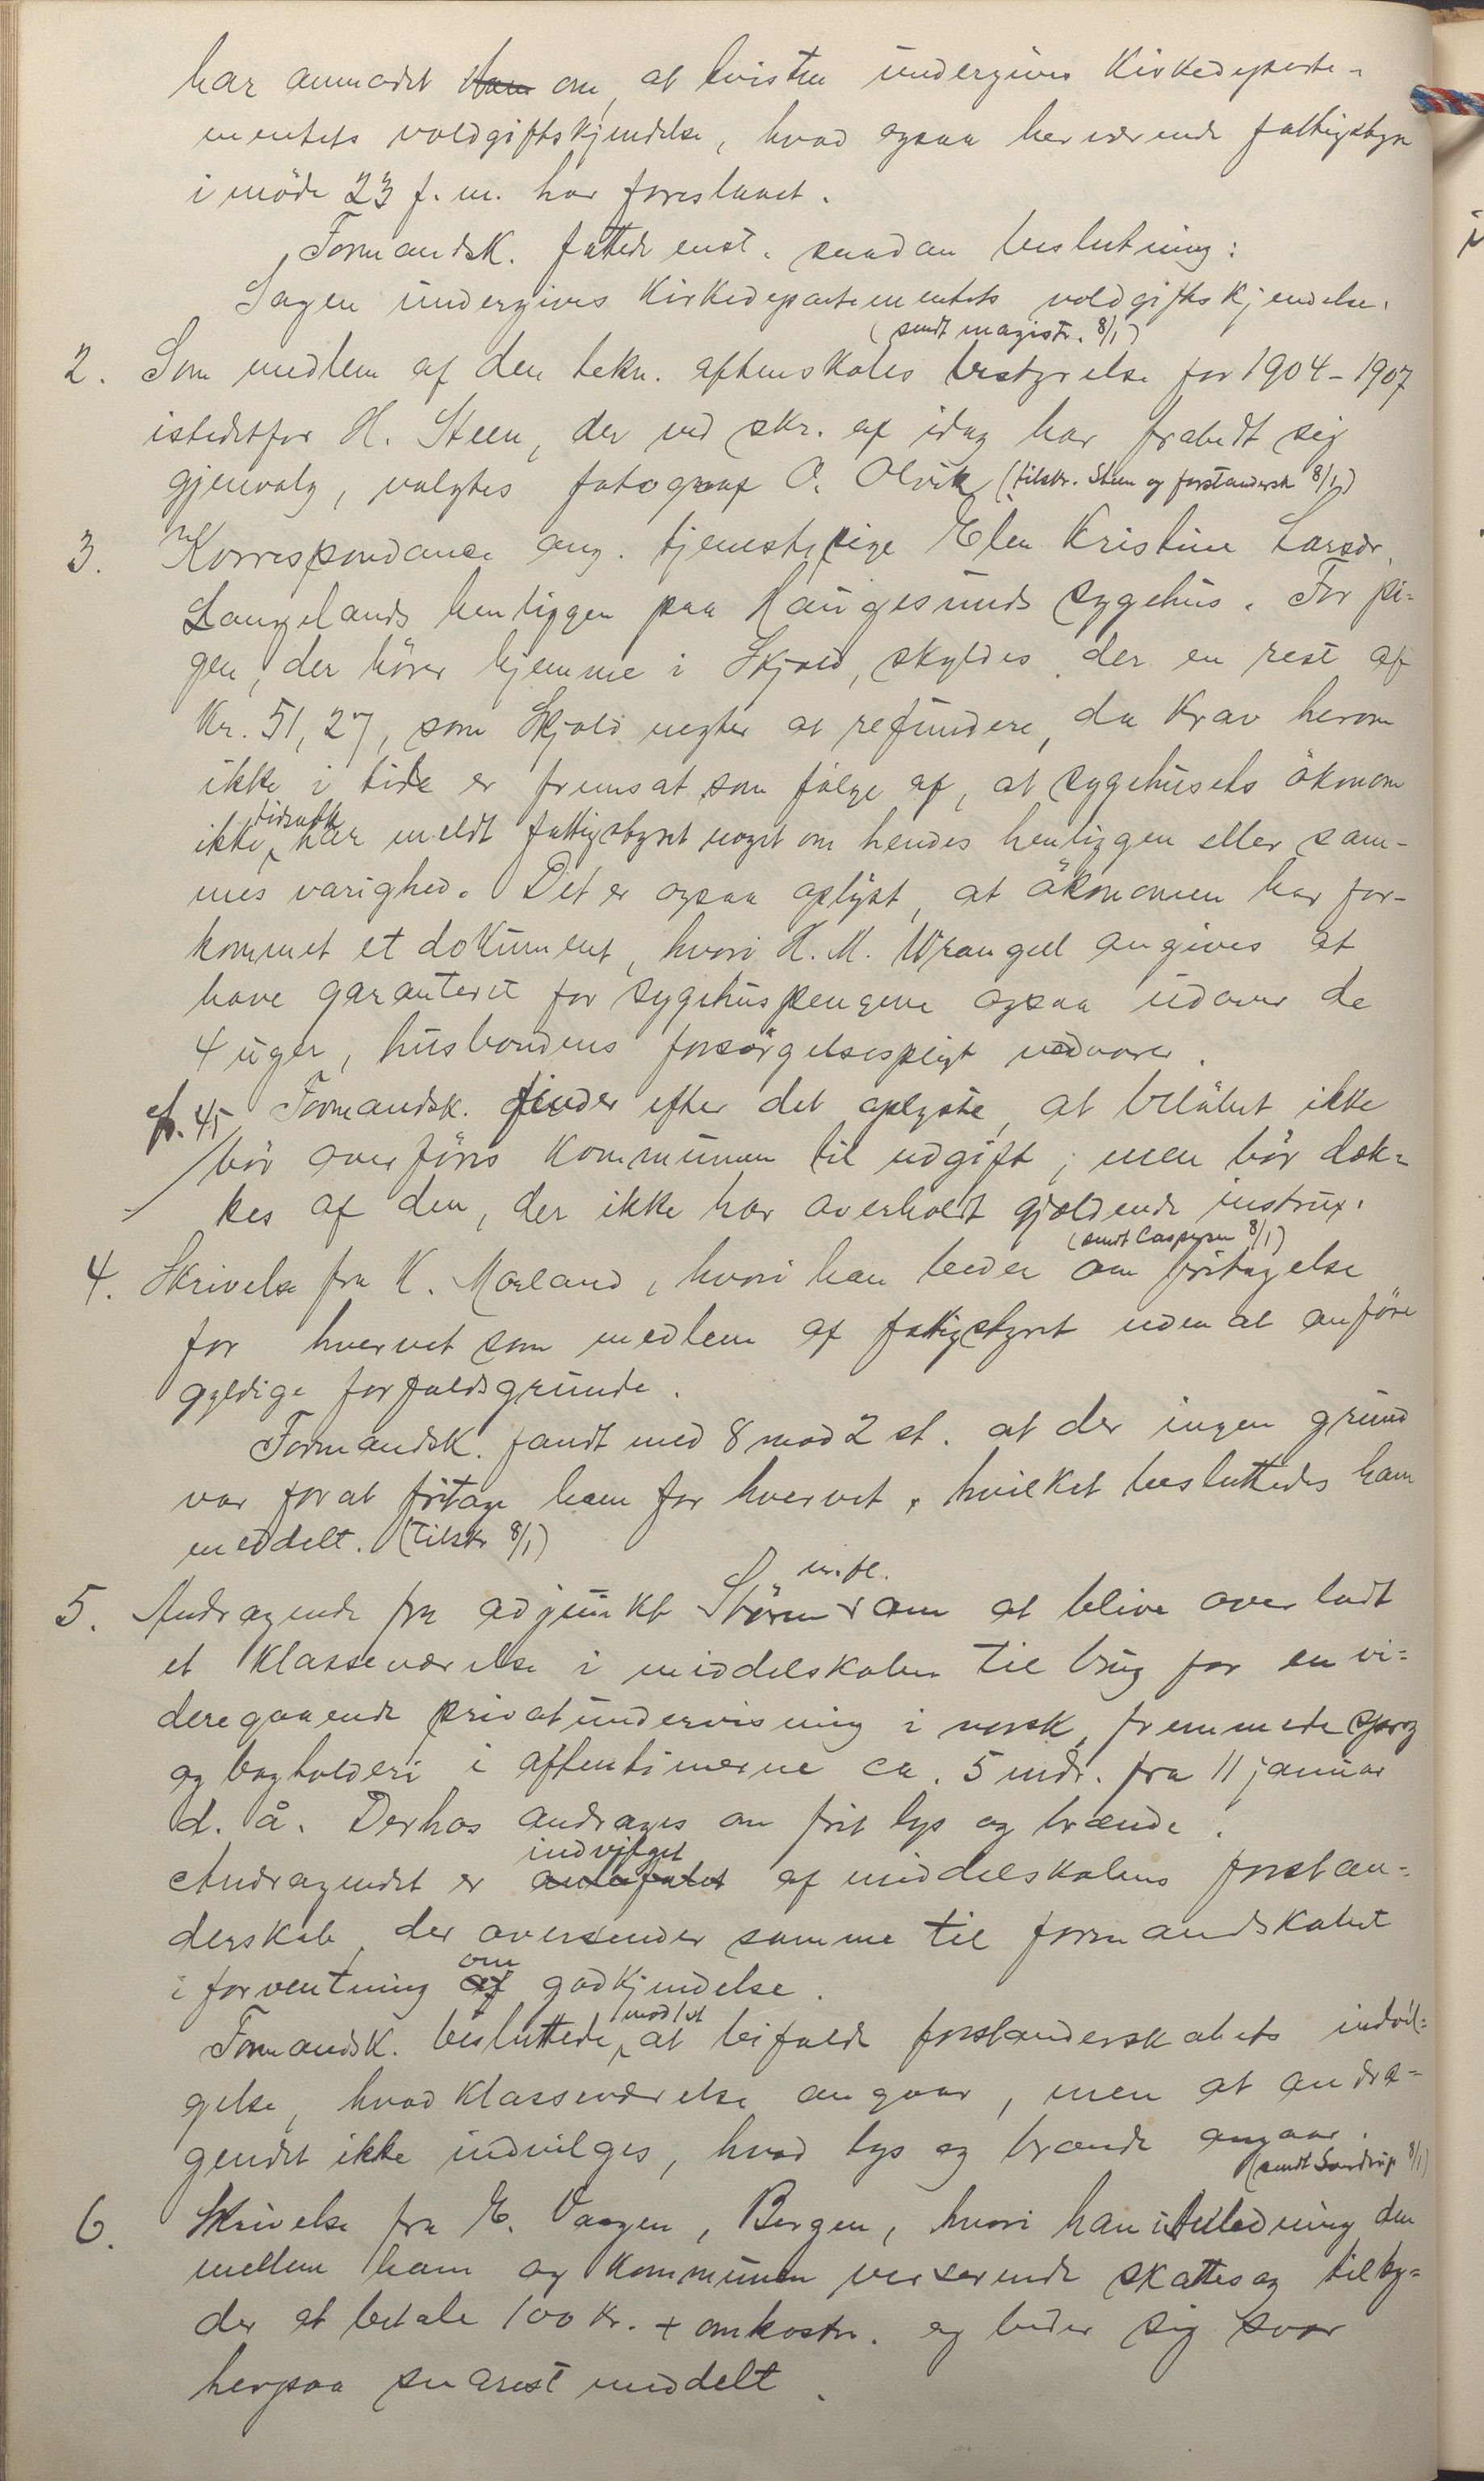 har anmodet ham om, at tvisten undergives Kirkedeparte-
mentets voldgiftskjendelse, hvad ogsaa herværende fattigstyre
i möde 23 f. m. har foreslaaet.
Formandsk. fattede enst. saadan beslutning:
Sagen undergives Kirkedepartementets voldgiftskjendelse.
(sendt magistr. 8/1)
2. Som medlem af den tekn. aftenskoles bestyrelse for 1904-1907
istedetfor H. Steen, der ved skr. af idag har frabedt sig
gjenvalg, valgtes fotograf O. Olvik (tilskr. Steen og forstandersk 8/1)
3. Korrespondance ang. tjenestepige Elen Kristine Larsdr.
Langelands henliggen paa Haugesunds sygehus. For pi-
gen, der hörer hjemme i Skjold, skyldes der en rest af
Kr. 51,27, som Skjold negter at refundere, da krav herom
ikke i tide er fremsat som fölge af, at sygehusets ökonom
tidsnok
ikke har meldt fattigstyret noget om hendes henliggen eller sam-
mes varighed. Det er ogsaa oplyst, at ökonomen har for-
kommet et dokument, hvori H. M. Wrangell angives at
have garanteret for sygehuspengene ogsaa udover de
4 uger, husbondens forsörgelsespligt vedvarer.
cfr. 45 Formandsk. finder efter det oplyste, at belöbet ikke
bör overföres kommunen til udgift, men bör dæk-
kes af den, der ikke har overholdt gjældende instrux.
(sendt Caspersen 8/1)
4. Skrivelse fra K. Mæland, hvori han beder om fritagelse
for hvervet som medlem af fattigstyret uden at anföre
gyldige forfaldsgrunde.
Formandsk. fandt med 8 mod 2 st. at der ingen grund
var for at fritage ham for hvervet, hvilket besluttedes ham
meddelt. (tilskr 8/1)
m. fl.
5. Andragende fra adjunkt Stören om at blive overladt
et klasseværelse i middelskolen til brug for en vi-
deregaaende privatundervisning i norsk, fremmede sprog
og bogholderi i aftentimerne ca. 5 mdr. fra 11 januar
d. å. Derhos andrages om frit lys og brænde.
indvilget
Andragendet er anbefalet af middelskolens forstan-
derskab, der oversender samme til formandskabet
om
i forventning af godkjendelse.
mod 1 st
Formandsk. besluttede at bifalde forstanderskabets indvil-
gelse, hvad klasseværelse angaar, men at andra-
gendet ikke indvilges, hvad lys og brænde angaar.
(sendt Sandrup 8/1)
6. Skrivelse fra E. Vaagen, Bergen, hvori han i anledning den
mellem ham og kommunen verserende skattesag tilby-
der at betale 100 kr. + omkostn. og beder sig svar
herpaa snarest meddelt.